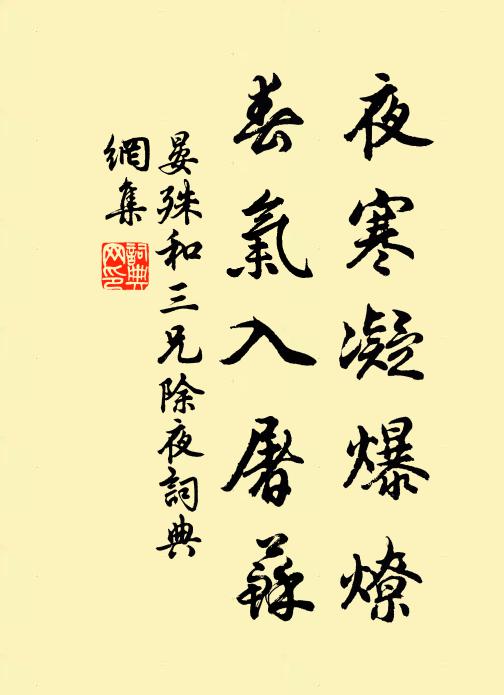 夜寒凝爆燎
春氣入屠蘇
晏殊和三兄除夜詞典
網集
詞典
网印